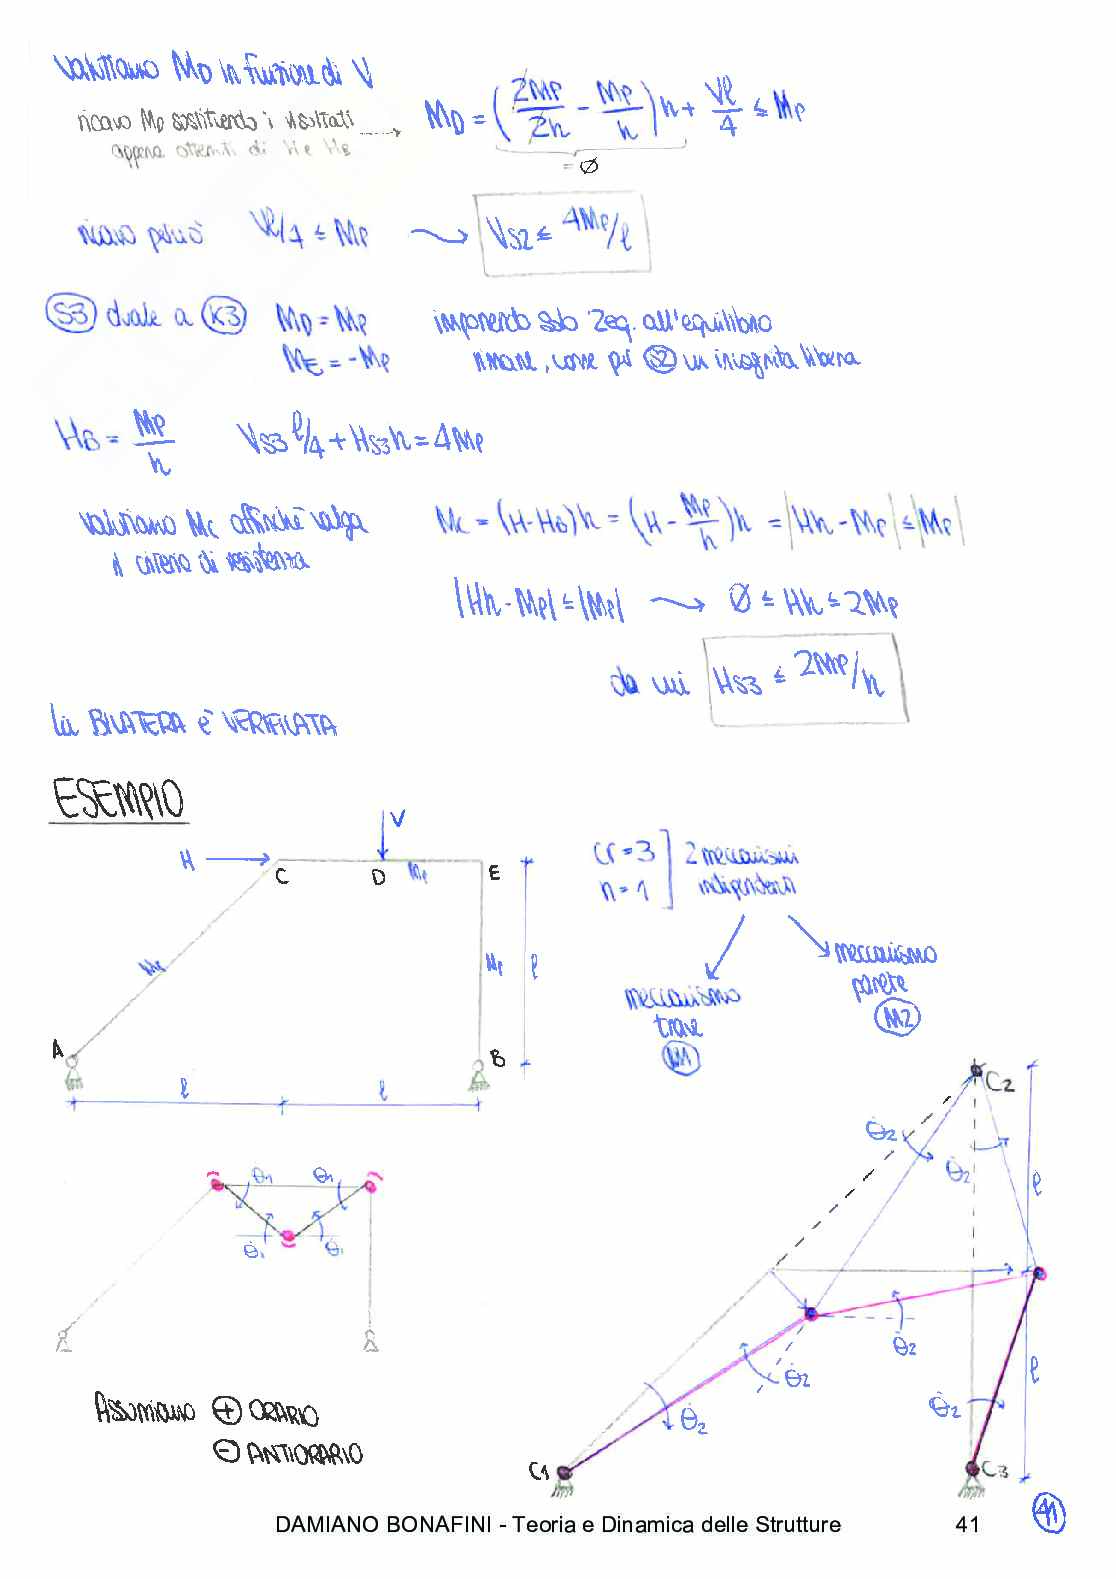 Valutiamo MD in funzione di V
ricavo MD sostituendo i risultati
appena ottenuti di H e HB
MD = (2Mp/2h - Mp/h)h + Vl/4 ≤ Mp
= Ø
ricavo perciò Vl/4 ≤ Mp → VS2 ≤ 4Mp/l
S3 duale a K3 MD = Mp imponendo solo 2 eq. all'equilibrio
ME = -Mp rimane, come per S2 un incognita libera
HB = Mp/h VS3 l/4 + HS3h = 4Mp
valutiamo Mc affinché valga
il criterio di resistenza
Mc = (H-HB)h = (H - Mp/h)h = |Hh - Mp| ≤ |Mp|
|Hh - Mp| ≤ |Mp| → Ø ≤ Hh ≤ 2Mp
da cui HS3 ≤ 2Mp/h
la BILATERA è VERIFICATA
ESEMPIO
V
H
C
D
Mp
E
Mp
Mp
l
A
B
l
l
cr = 3
n = 1
2 meccanismi
indipendenti
meccanismo
trave
M1
meccanismo
parete
M2
C2
θ̇2
θ̇2
l
θ̇1
θ̇1
θ̇1
θ̇1
θ̇2
θ̇2
l
θ̇2
θ̇2
C1
C3
Assumiamo + ORARIO
- ANTIORARIO
DAMIANO BONAFINI - Teoria e Dinamica delle Strutture 41
41